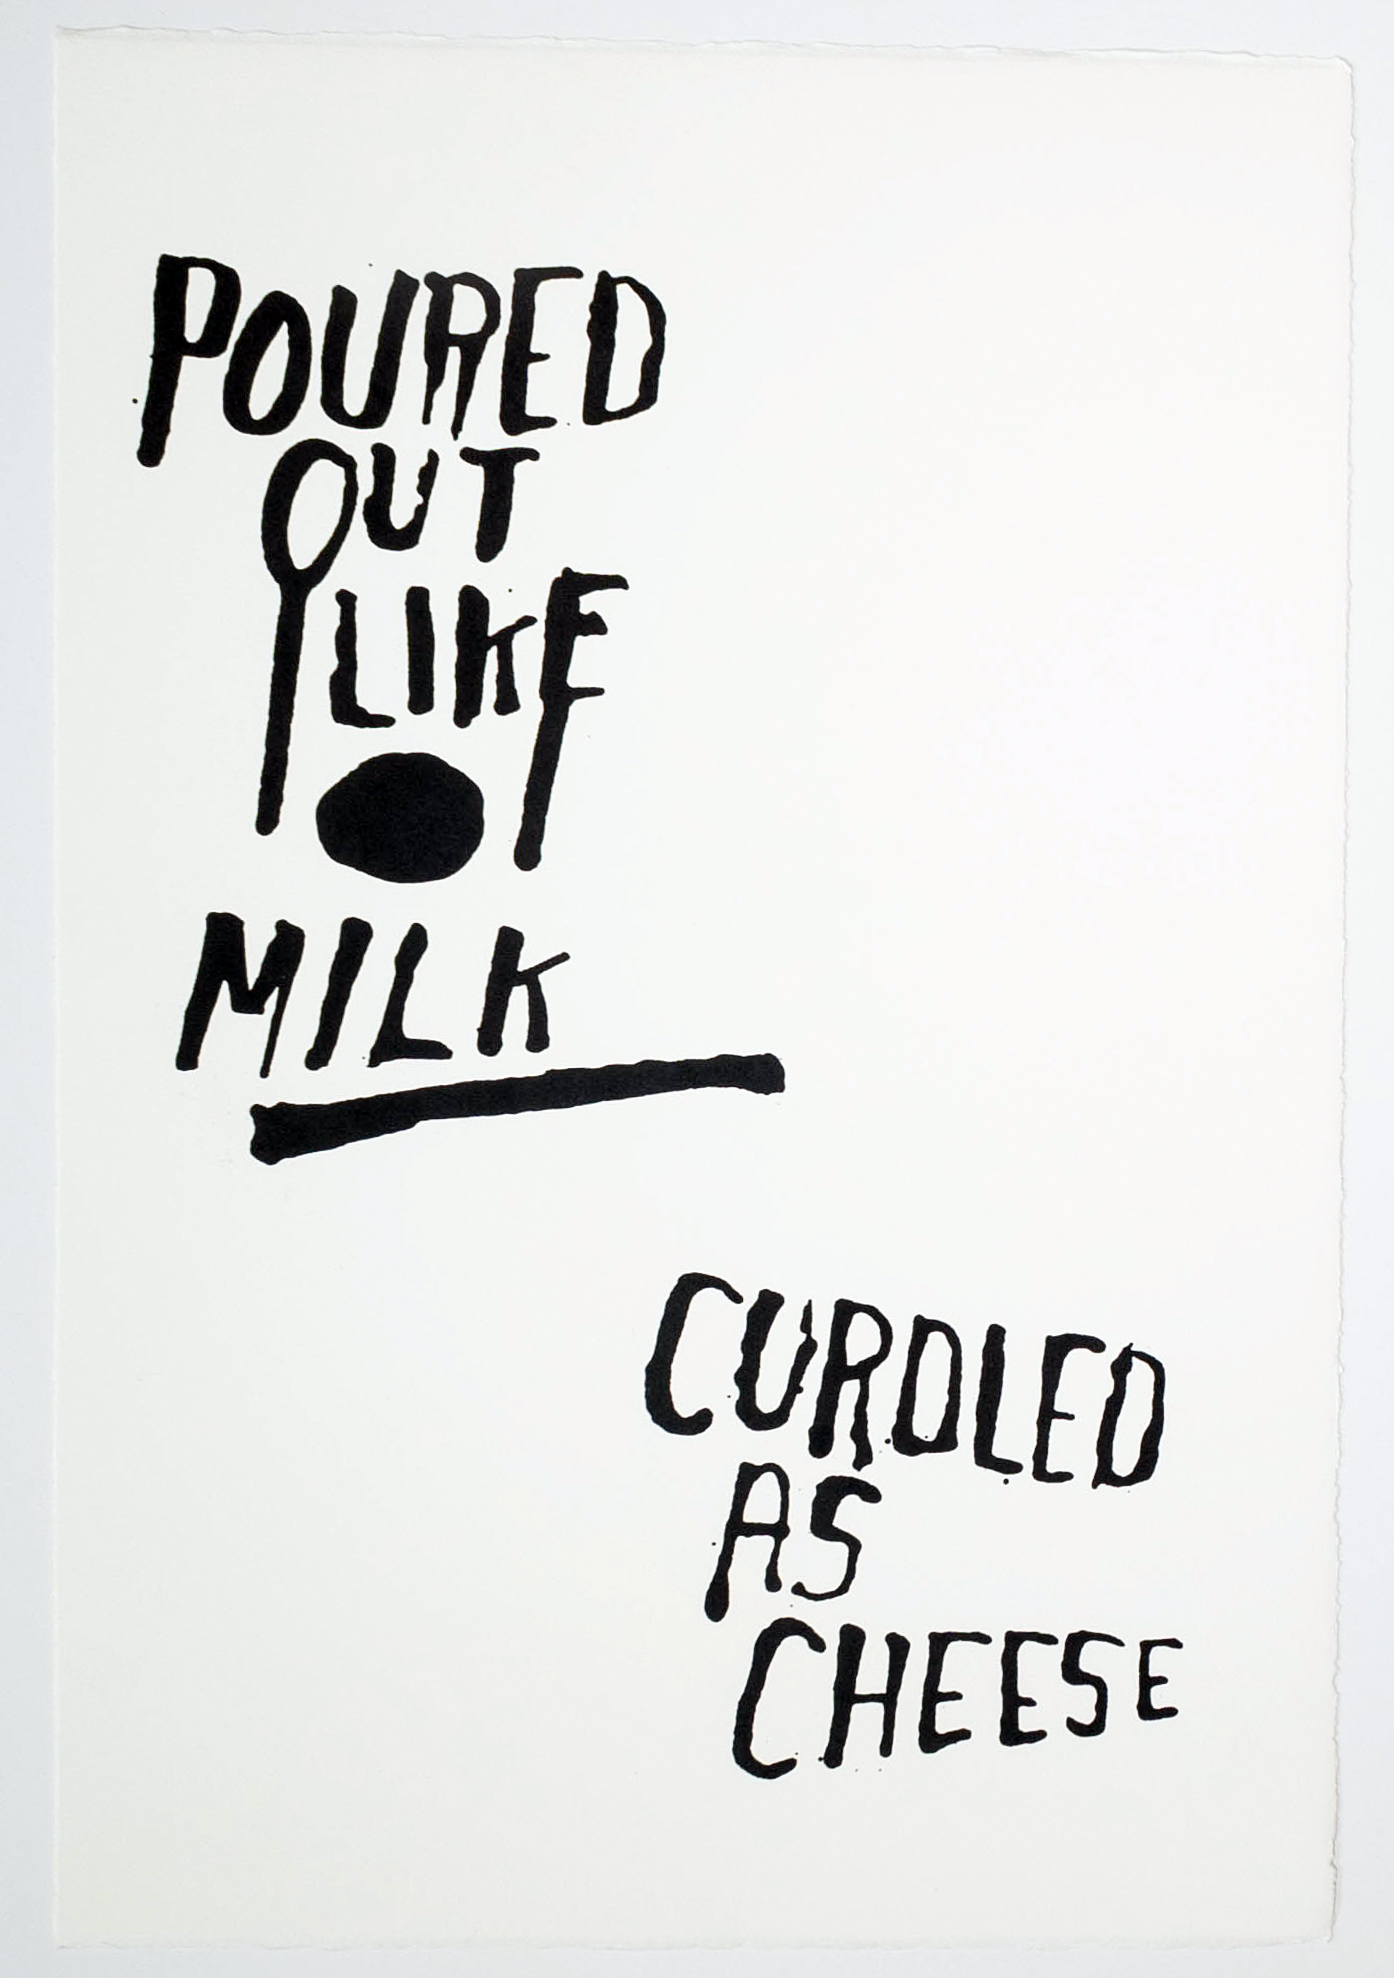 POURED
OUT
LIKE
MILK
CURDLED
AS
CHEESE